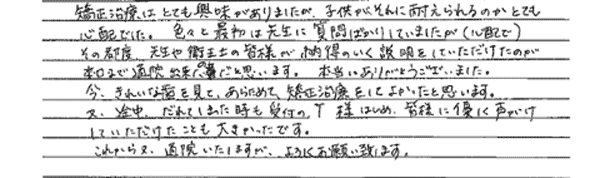 矯正治療はとても興味がありましたが、子供がそれに耐えられるのかとても
心配でした。色々と最初は先生に質問ばかりしていましたが(心配で)
その都度、先生や衛生士の皆様が納得のいく説明をしていただけたのが
本日まで通院出来た事だと思います。本当にありがとうございました。
今、きれいな歯を見て、あらためて矯正治療をしてよかったと思います。
又、途中、だれてしまった時も受付のT様はじめ、皆様に優しく声がけ
していただけたことも大きかったです。
これから又、通院いたしますが、よろしくお願い致します。